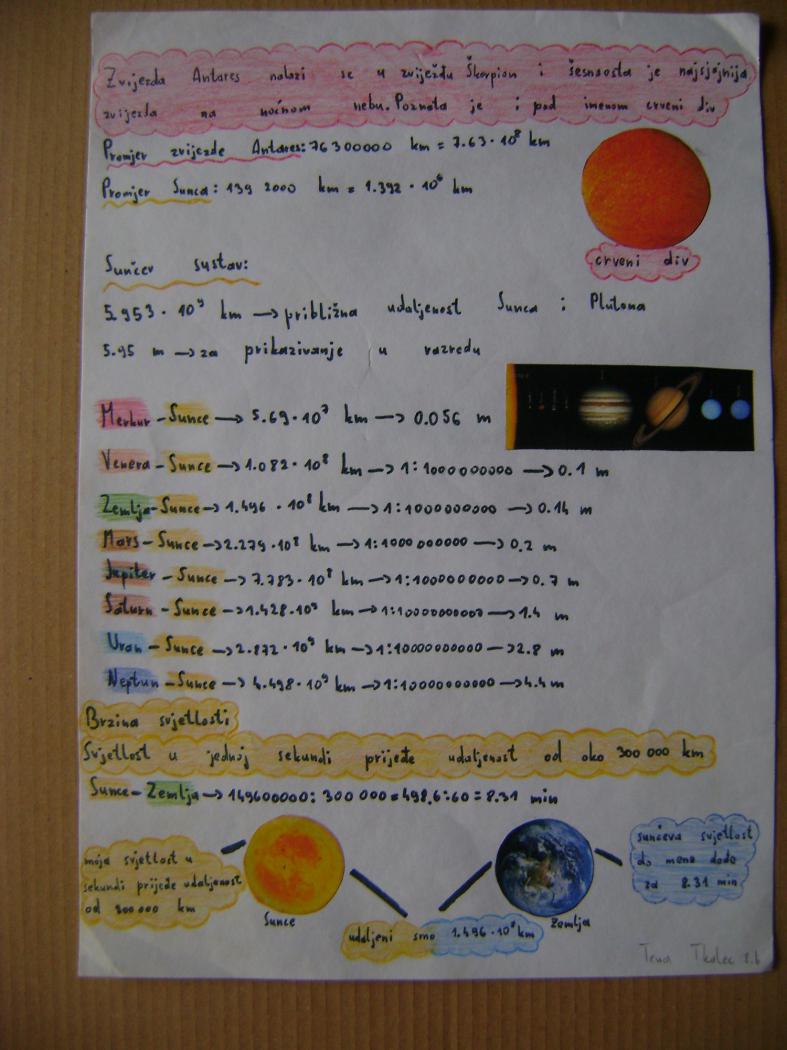 Zvijezda Antares nalazi se u zviježđu Škorpion i šesnaesta je najsjajnija
zvijezda na noćnom nebu. Poznata je i pod imenom crveni div
Promjer zvijezde Antares: 76300000 km = 7.63 · 10⁸ km
Promjer Sunca: 139 2000 km = 1.392 · 10⁶ km
crveni div
Sunčev sustav:
5.953 · 10⁹ km → približna udaljenost Sunca i Plutona
5.95 m → za prikazivanje u razredu
Merkur - Sunce → 5.69 · 10⁷ km → 0.056 m
Venera - Sunce → 1.082 · 10⁸ km → 1:1000000000 → 0.1 m
Zemlja - Sunce → 1.496 · 10⁸ km → 1:1000000000 → 0.14 m
Mars - Sunce → 2.279 · 10⁸ km → 1:1000000000 → 0.2 m
Jupiter - Sunce → 7.783 · 10⁸ km → 1:1000000000 → 0.7 m
Saturn - Sunce → 1.428 · 10⁹ km → 1:10000000000 → 1.4 m
Uran - Sunce → 2.872 · 10⁹ km → 1:10000000000 → 2.8 m
Neptun - Sunce → 4.498 · 10⁹ km → 1:10000000000 → 4.4 m
Brzina svjetlosti
Svjetlost u jednoj sekundi prijeđe udaljenost od oko 300 000 km
Sunce - Zemlja → 149600000 : 300 000 = 498.6 : 60 = 8.31 min
moja svjetlost u
sekundi prijeđe udaljenost
od 300 000 km
Sunce
udaljeni smo 1.496 · 10⁸ km
Zemlja
sunčeva svjetlost
do mene dođe
za 8.31 min
Tena Tkalec 8.b